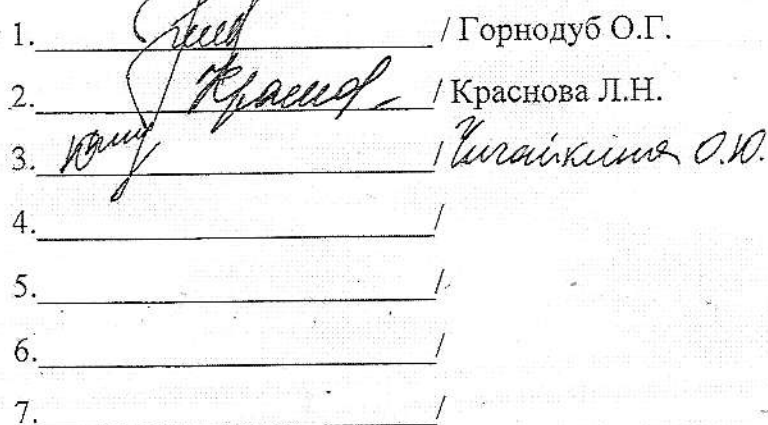 1. / Горнодуб О.Г.
2. Краснов / Краснова Л.Н.
3. / Чигайкина О.Ю.
4. /
5. /
6. /
7. /